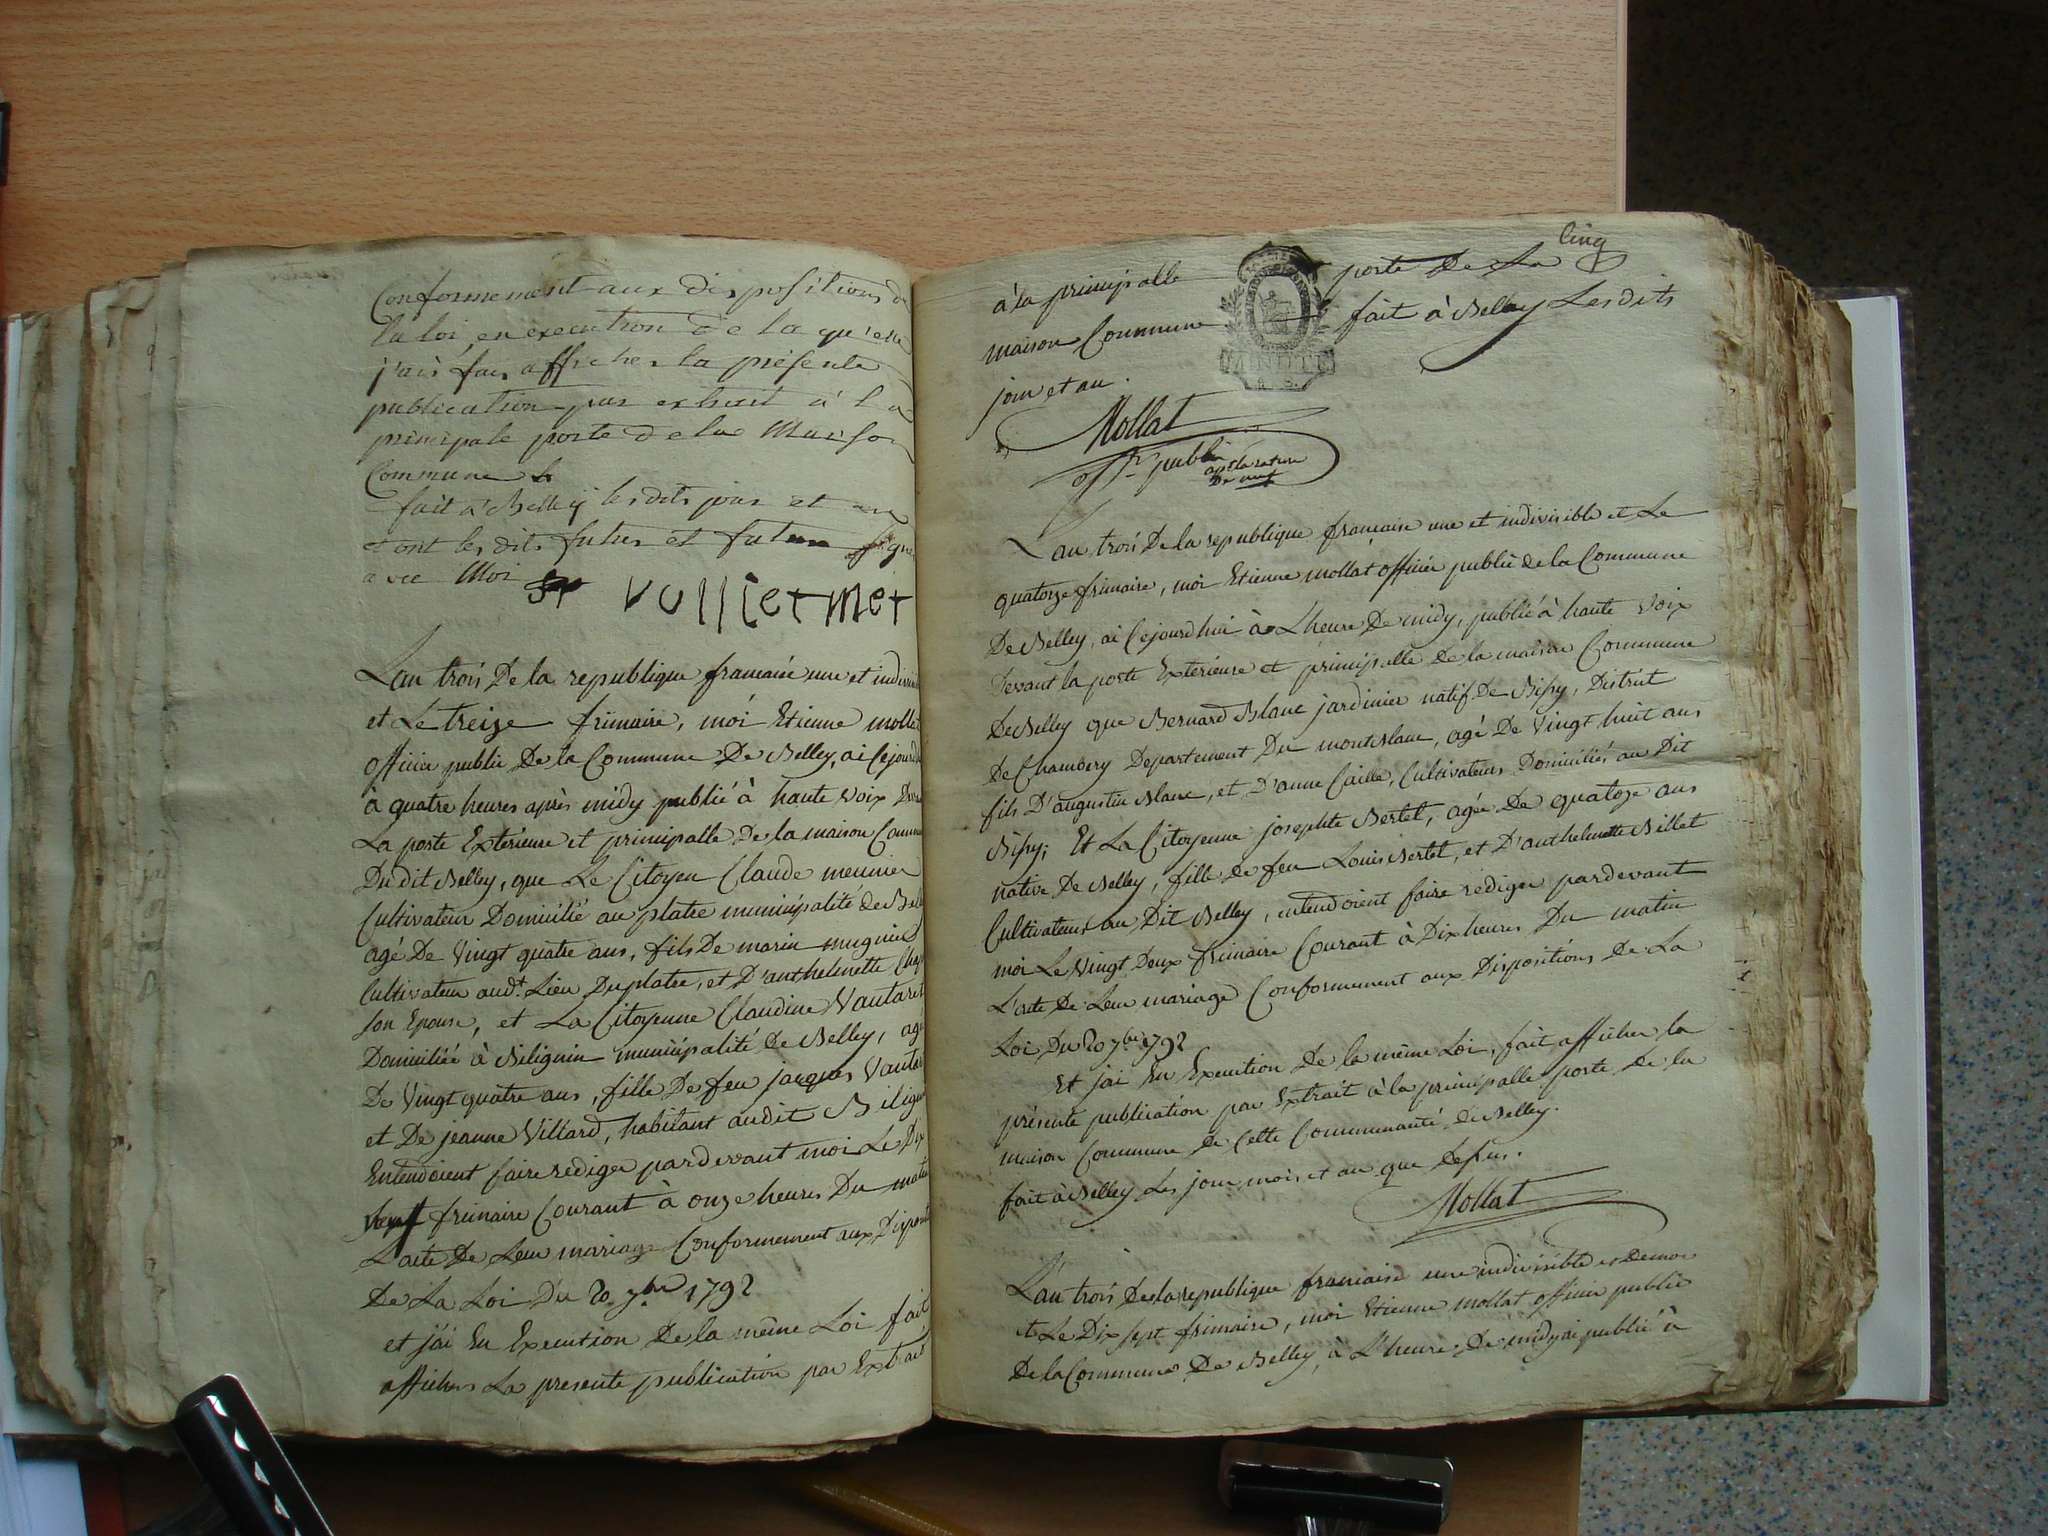 Conformement aux dispositions de
la loi, en execution de la qu'elle
j'ai fais afficher la présente
publication par extrait à la
principale porte de la Maison
Commune
fait à Belley lesdits jour et an
et ont lesdits futurs et future signé
avec Moi
vulliermet
Lan trois De la republique francaise une et indivisi
et Le treize frimaire, moi Etienne molla
officier public De la Commune De Belley, ai Cejourd
à quatre heures après midy publié à haute voix Deva
La porte Exterieure et principalle De la maison Commu
Du dit Belley, que Le Citoyen Claude meunier
Cultivateur Domicilié au platre municipalité de Bell
agé De Vingt quatre ans, fils De marin mugnier
Cultivateur audt. Lieu Du platre, et D'anthelmette Chap
son Epouse, et La Citoyenne Claudine Vautaret
Domiciliée à Bilignin municipalité De Belley, agé
De Vingt quatre ans, fille De feu jacques Vauta
et De jeanne Villard, habitant audit Bilign
Entendoient faire rediger pardevant moi Le Dix
neuf frimaire Courant à onze heures Du matin
L'acte De Leur mariage Conformement aux Disposit
De La Loi Du 20 7bre 1792
et j'ai En Execution De la même Loi fait
afficher La presente publication par Extrait
Cinq
à la principalle porte De La
maison Commune fait à Belley Lesdits
jour et an.
Mollat
offr. public
Lan trois De la republique francaise une et indivisible et Le
quatorze frimaire, moi Etienne mollat officier public de la Commune
De Belley, ai Cejourdhui à L'heure De midy, publié à haute Voix
Devant la porte Exterieure et principalle De la maison Commune
De Belley que Bernard Blanc jardinier natif De Bissy, District
De Chambery Departement Du montblanc, agé De Vingt huit ans
fils D'augustin Blanc, et D'anne Caille, Cultivateurs Domiciliés au Dit
Bissy; Et La Citoyenne josephte Bertet, agée De quatoze ans
native De Belley, fille de feu Louis Bertet, et D'anthelmette Billet
Cultivateurs au Dit Belley, entendoient faire rédiger pardevant
moi Le Vingt Deux frimaire Courant à Dix heures Du matin
L'acte De Leur mariage Conformement aux Dispositions De La
Loi Du 20 7bre 1792
Et jai En Execution De la même Loi, fait afficher la
présente publication par Extrait à la principalle porte de la
maison Commune de Cette Communauté de Belley.
fait à Belley Les jour mois et an que Dessus.
Mollat
L'an trois De la republique francaise une indivisible et Democ
et Le Dix sept frimaire, moi Etienne mollat officier public
De la Commune De Belley, à L'heure De midy ai publié à